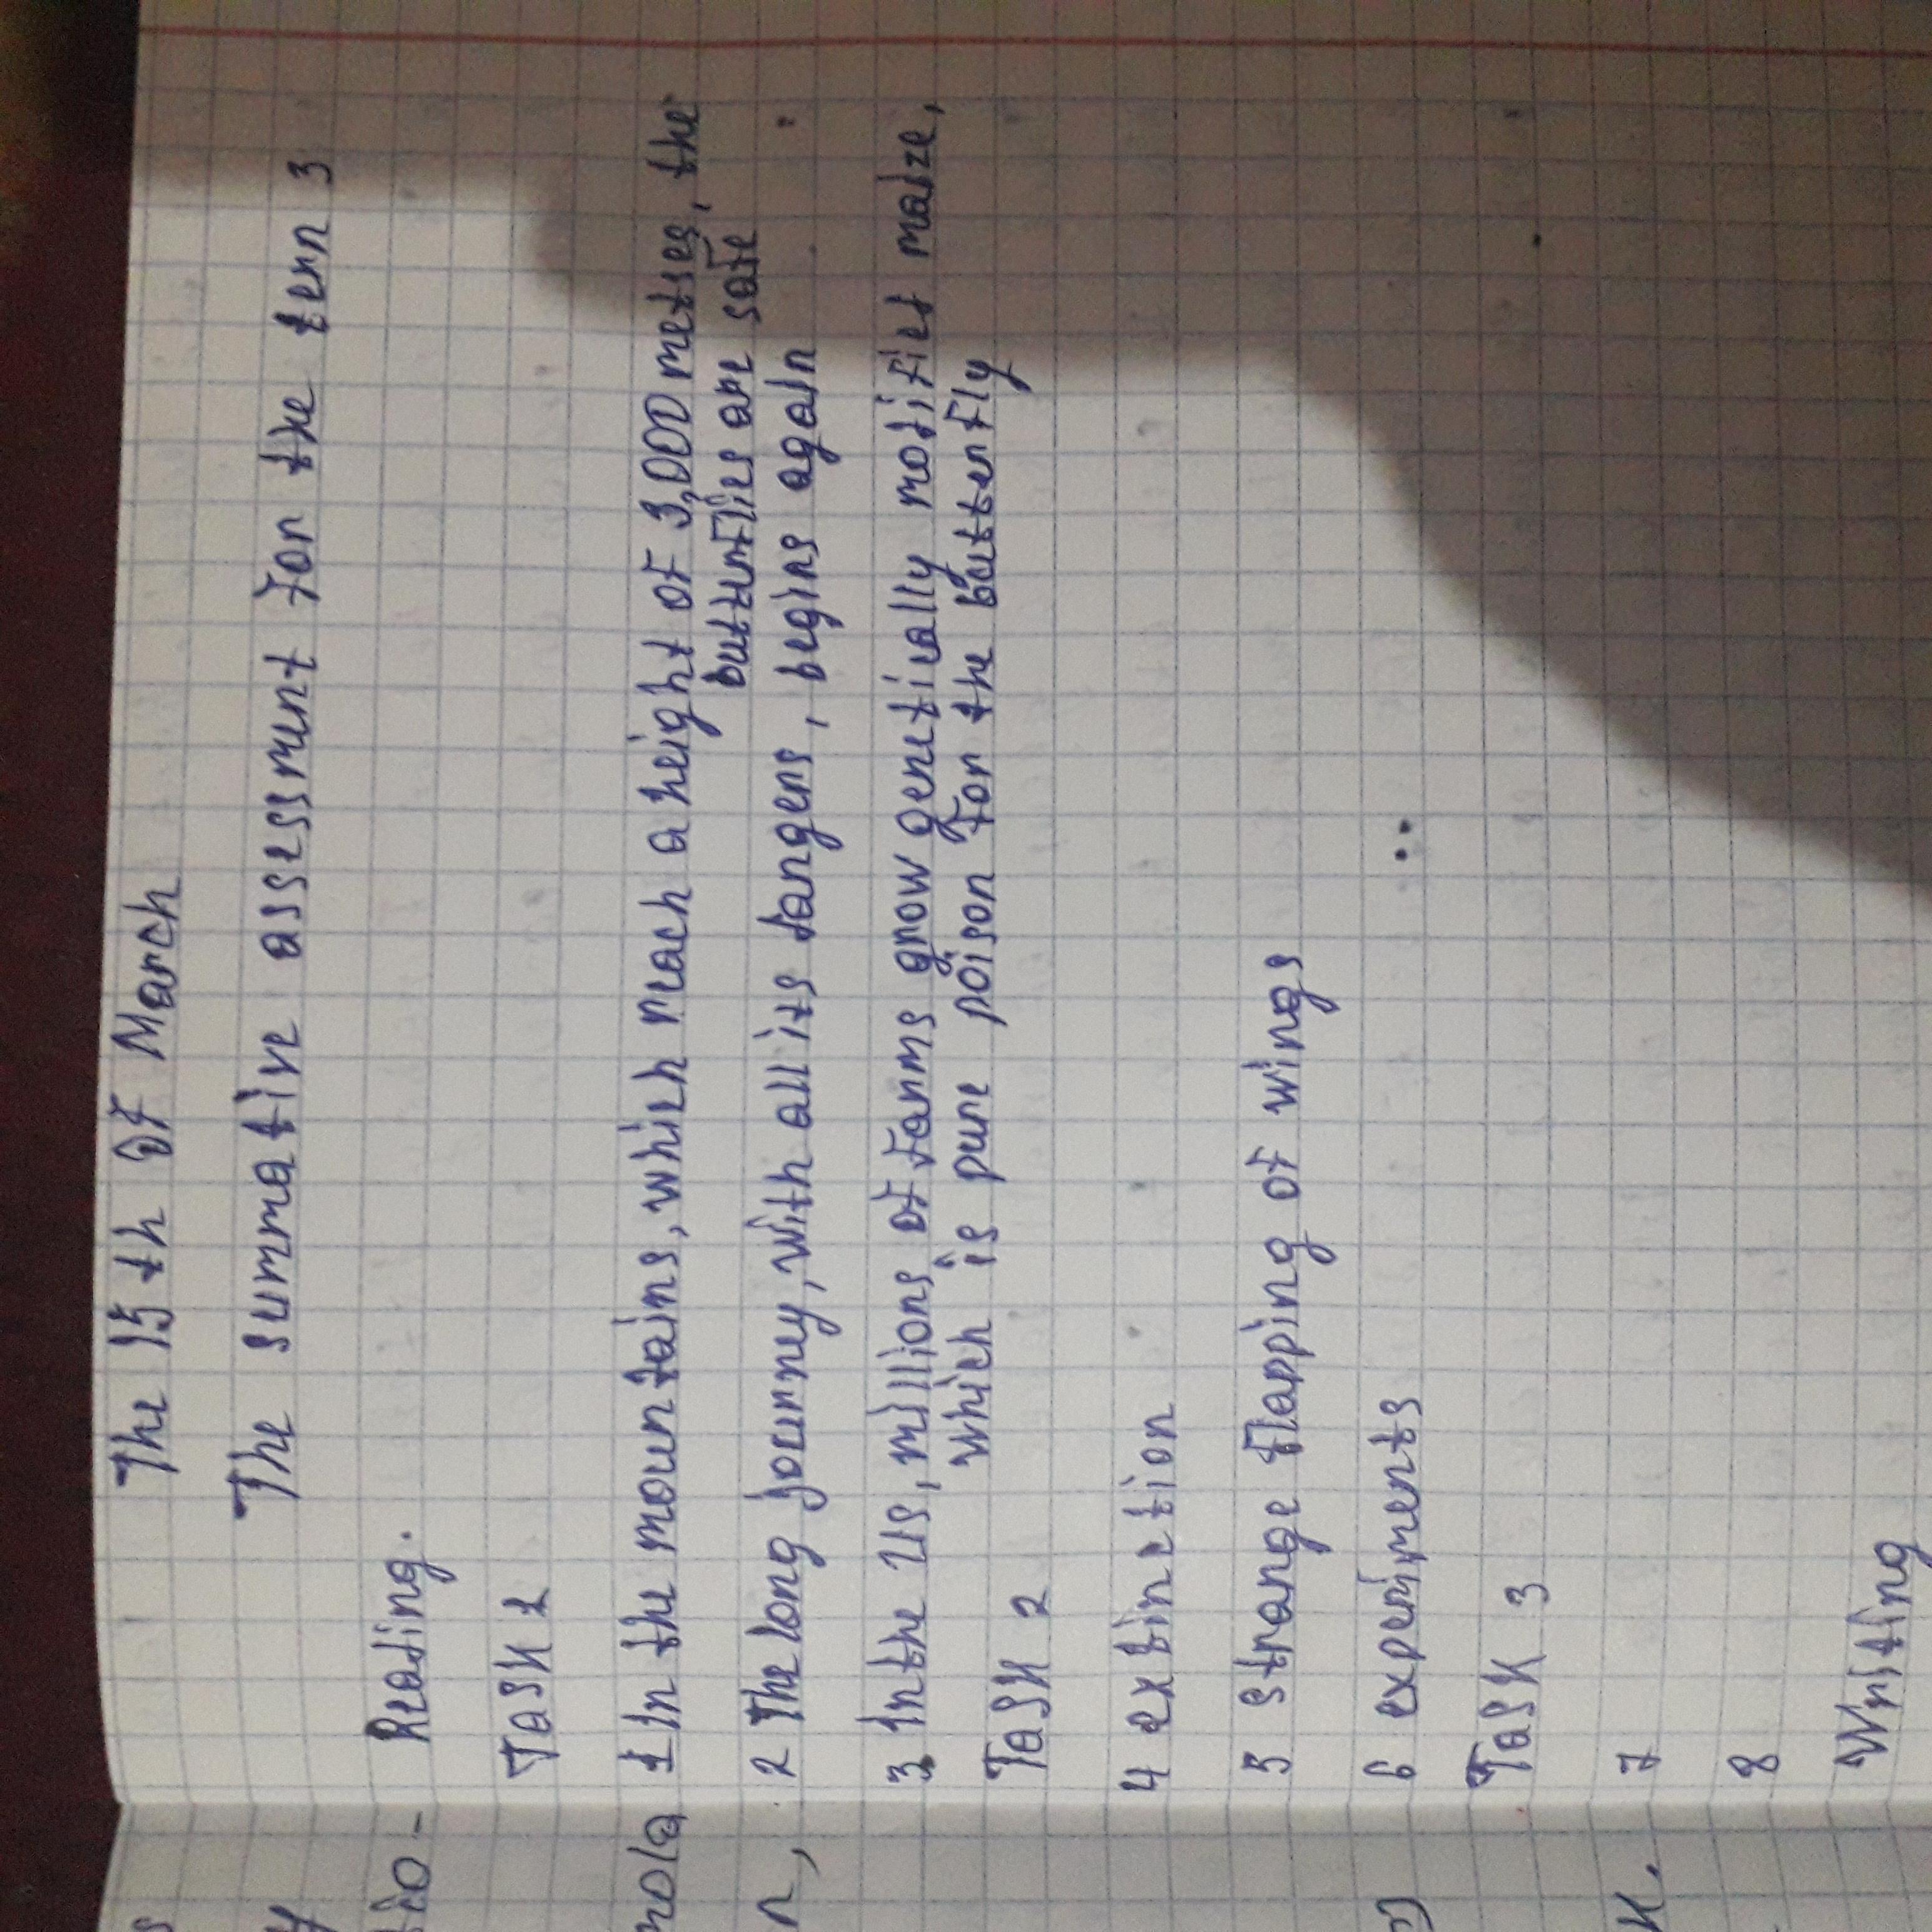 The 15 th of March
The summative assessment for the term 3
Reading.
Task 1
1 In the mountains, which reach a height of 3,000 metres, the
butterflies are safe
2 The long journey, with all its dangers, begins again
3 In the US, millions of farms grow genetically modified maize,
which is pure poison for the butterfly
Task 2
4 extinction
5 strange flapping of wings
6 experiments
Task 3
7
8
Writing